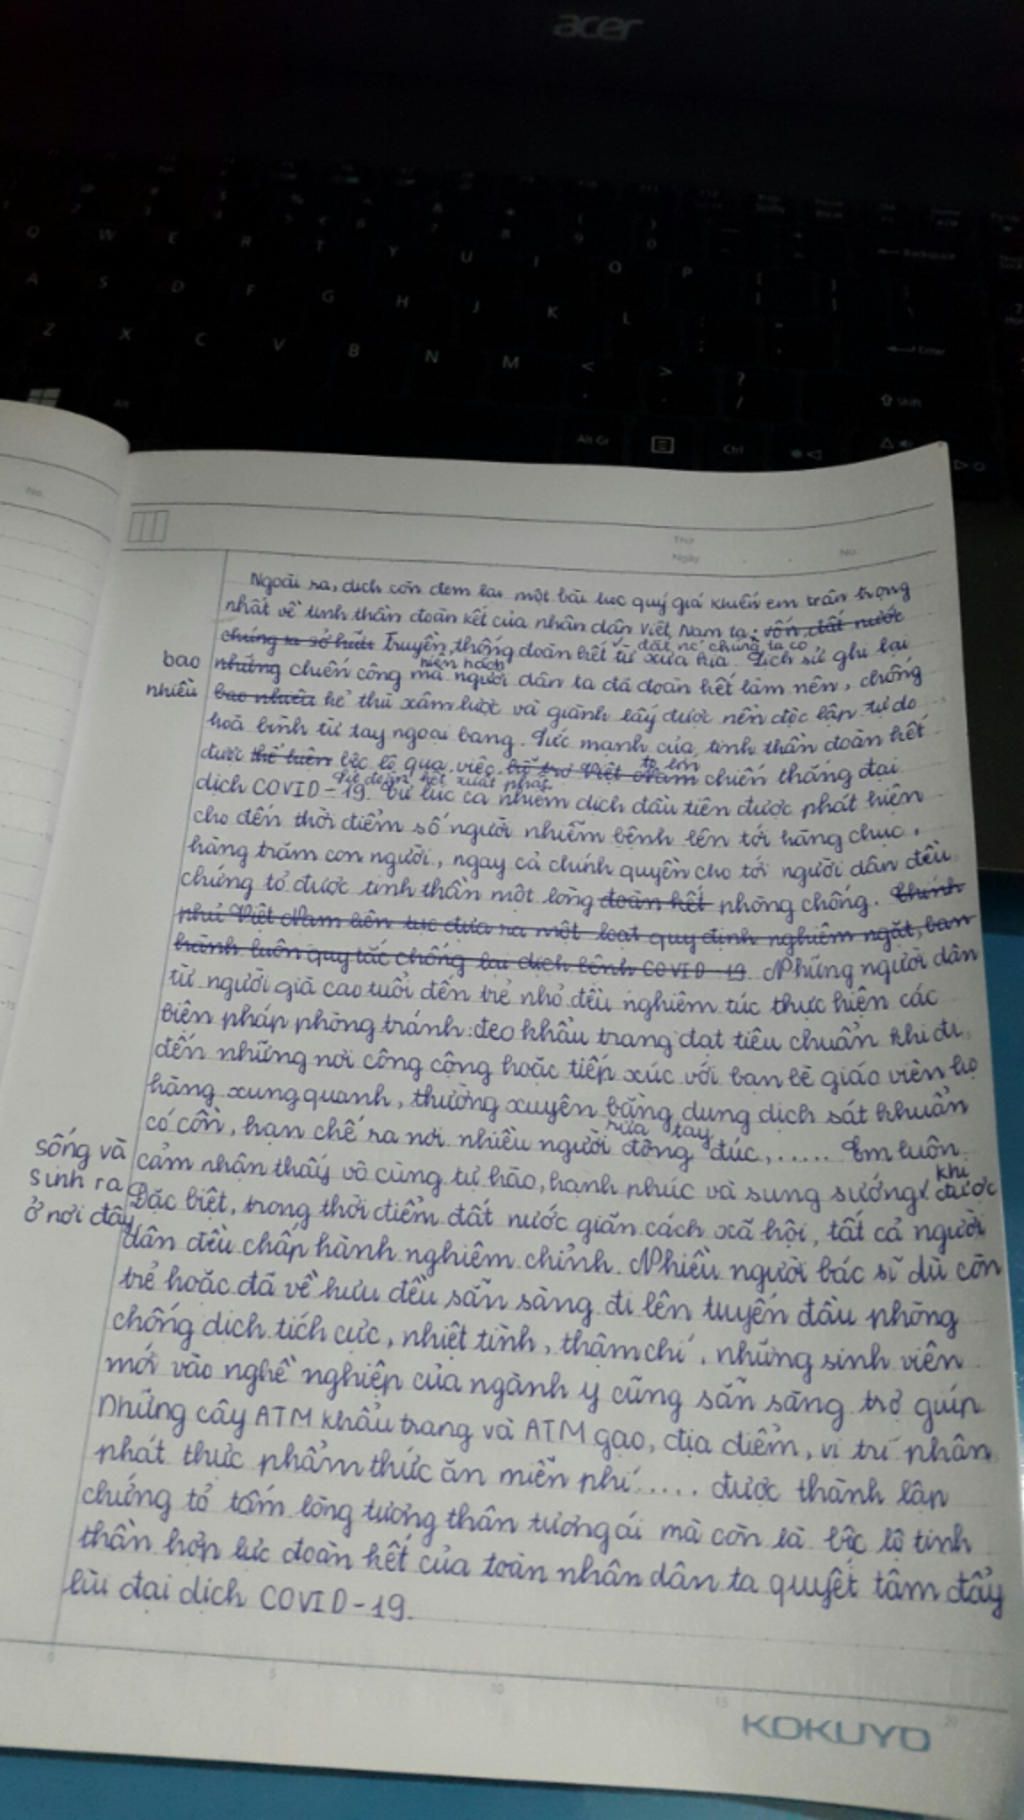 acer
Q W E R T Y U I O P
A S D F G H J K L
Z X C V B N M
Backspace
Enter
Shift
Alt Gr
Ctrl
No.
Thứ
Ngày
No.
Ngoài ra, dịch còn đem lại một bài học quý giá khiến em trân trọng
nhất về tinh thần đoàn kết của nhân dân Việt Nam ta: vốn đất nước
chúng ta sở hữu Truyền thống đoàn kết từ xưa kia. Lịch sử ghi lại
đất nc chúng ta có
bao những chiến công mà người dân ta đã đoàn kết làm nên, chống
hiển hách
nhiều bao nhiêu kẻ thù xâm lược và giành lấy được nền độc lập tự do
hoà bình từ tay ngoại bang. Sức mạnh của tinh thần đoàn kết
được thể hiện bộc lộ qua việc Việt Nam chiến thắng đại
to lớn
dịch COVID-19. Từ lúc ca nhiễm dịch đầu tiên được phát hiện
Sự đoàn kết xuất phát
cho đến thời điểm số người nhiễm bệnh lên tới hàng chục,
hàng trăm con người, ngay cả chính quyền cho tới người dân đều
chứng tỏ được tinh thần một lòng đoàn kết phòng chống. Chính
phủ Việt Nam liên tục đưa ra một loạt quy định nghiêm ngặt, ban
hành luôn quy tắc chống lại dịch bệnh COVID-19. Những người dân
từ người già cao tuổi đến trẻ nhỏ đều nghiêm túc thực hiện các
biện pháp phòng tránh: đeo khẩu trang đạt tiêu chuẩn khi đi
đến những nơi công cộng hoặc tiếp xúc với bạn bè giáo viên họ
hàng xung quanh, thường xuyên bằng dung dịch sát khuẩn
rửa tay
có cồn, hạn chế ra nơi nhiều người đông đúc, ..... Em luôn
sống và cảm nhận thấy vô cùng tự hào, hạnh phúc và sung sướng khi được
sinh ra Đặc biệt, trong thời điểm đất nước giãn cách xã hội, tất cả người
ở nơi đây dân đều chấp hành nghiêm chỉnh. Nhiều người bác sĩ dù còn
trẻ hoặc đã về hưu đều sẵn sàng đi lên tuyến đầu phòng
chống dịch tích cực, nhiệt tình, thậm chí, những sinh viên
mới vào nghề nghiệp của ngành y cũng sẵn sàng trợ giúp
Những cây ATM khẩu trang và ATM gạo, địa điểm, vị trí phân
phát thực phẩm thức ăn miễn phí ..... được thành lập
chứng tỏ tấm lòng tương thân tương ái mà còn là bộc lộ tinh
thần hợp lực đoàn kết của toàn nhân dân ta quyết tâm đẩy
lùi đại dịch COVID-19.
0 5 10 15 20
KOKUYO